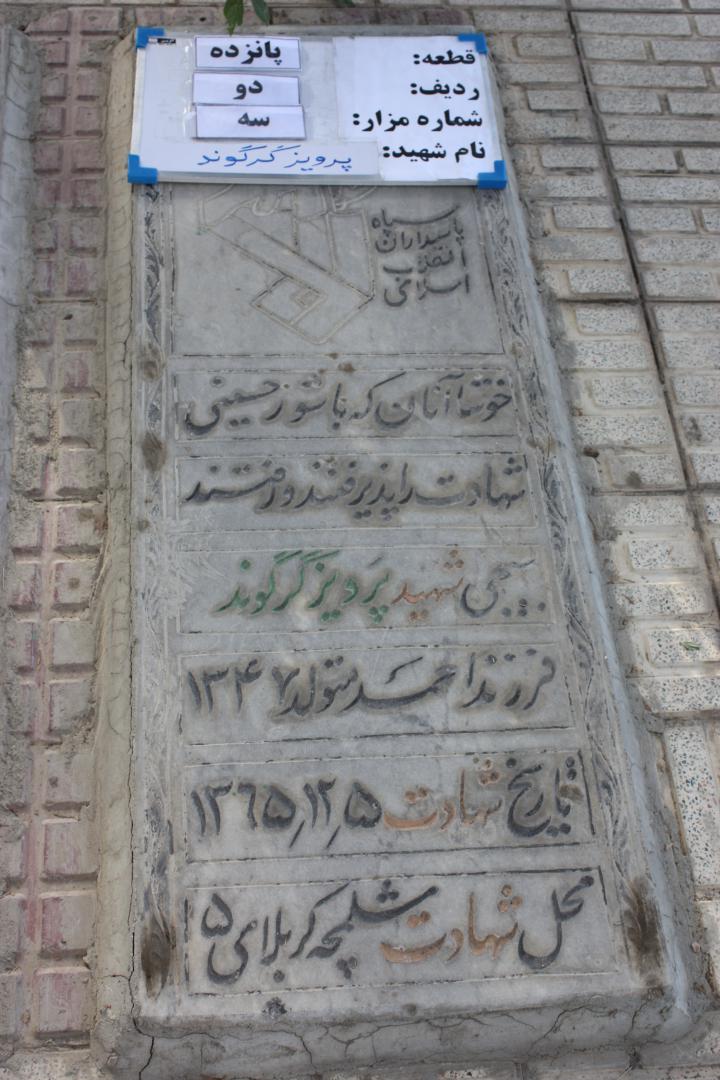 قطعه: پانزده
ردیف: دو
شماره مزار: سه
نام شهید: پرویز گرگوند
سپاه
پاسداران
انقلاب
اسلامی
خوشا آنان که با شور حسینی
شهادت را پذیرفتند و رفتند
بسیجی شهید پرویز گرگوند
فرزند احمد متولد ۱۳۴۷
تاریخ شهادت ۱۳۶۵٫۱۲٫۵
محل شهادت شلمچه کربلای ۵